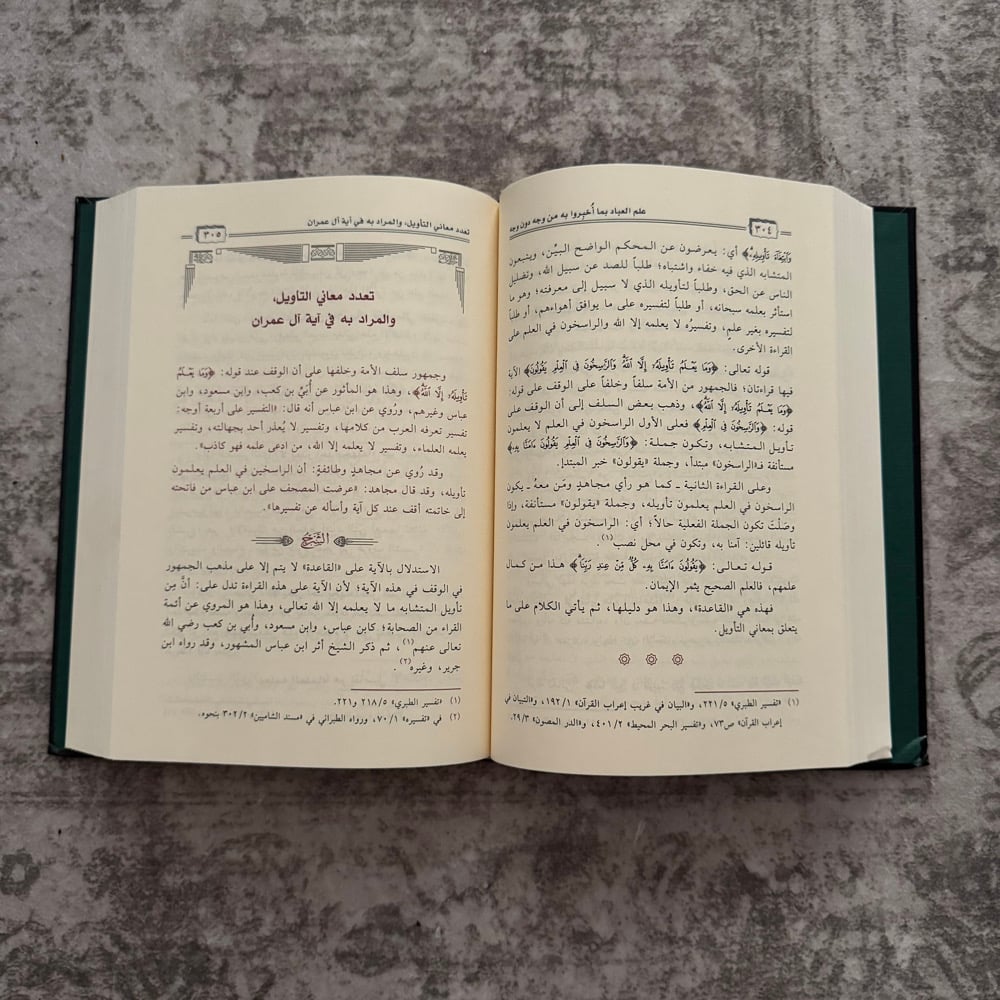 ٣٠٤
علم العباد بما أُخبروا به من وجه دون وجه
وَٱبْتِغَآءَ تَأْوِيلِهِۦ﴾ أي: يعرضون عن المحكم الواضح البيّن، ويتبعون
المتشابه الذي فيه خفاء واشتباه؛ طلباً للصد عن سبيل الله، وتضليل
الناس عن الحق، وطلباً لتأويله الذي لا سبيل إلى معرفته؛ وهو ما
استأثر بعلمه سبحانه، أو طلباً لتفسيره على ما يوافق أهواءهم، أو طلباً
لتفسيره بغير علمٍ، وتفسيرُه لا يعلمه إلا الله والراسخون في العلم على
القراءة الأخرى.
قوله تعالى: ﴿وَمَا يَعْلَمُ تَأْوِيلَهُۥٓ إِلَّا ٱللَّهُ وَٱلرَّٰسِخُونَ فِى ٱلْعِلْمِ يَقُولُونَ﴾ الآية
فيها قراءتان؛ فالجمهور من الأمة سلفاً وخلفاً على الوقف على قوله:
﴿وَمَا يَعْلَمُ تَأْوِيلَهُۥٓ إِلَّا ٱللَّهُ﴾، وذهب بعض السلف إلى أن الوقف على
قوله: ﴿وَٱلرَّٰسِخُونَ فِى ٱلْعِلْمِ﴾ فعلى الأول الراسخون في العلم لا يعلمون
تأويل المتشابه، وتكون جملة: ﴿وَٱلرَّٰسِخُونَ فِى ٱلْعِلْمِ يَقُولُونَ ءَامَنَّا بِهِۦ﴾
مستأنفة فـ«الراسخون» مبتدأ، وجملة «يقولون» خبر المبتدإ.
وعلى القراءة الثانية ـ كما هو رأي مجاهدٍ ومَن معهُ ـ يكون
الراسخون في العلم يعلمون تأويله، وجملة «يقولون» مستأنفة، وإذا
وصَلْتَ تكون الجملة الفعلية حالاً؛ أي: الراسخون في العلم يعلمون
تأويله قائلين: آمنا به، وتكون في محل نصب(١).
قوله تعالى: ﴿يَقُولُونَ ءَامَنَّا بِهِۦ كُلٌّ مِّنْ عِندِ رَبِّنَا﴾ هذا من كمال
علمهم، فالعلم الصحيح يثمر الإيمان.
فهذه هي «القاعدة»، وهذا هو دليلها، ثم يأتي الكلام على ما
يتعلق بمعاني التأويل.
(١) «تفسير الطبري» ٢٢١/٥، و«البيان في غريب إعراب القرآن» ١٩٢/١، و«التبيان في
إعراب القرآن» ص٧٣، و«تفسير البحر المحيط» ٤٠١/٢، و«الدر المصون» ٢٩/٣.
تعدد معاني التأويل، والمراد به في آية آل عمران
٣٠٥
تعدد معاني التأويل،
والمراد به في آية آل عمران
وجمهور سلف الأمة وخلفها على أن الوقف عند قوله: ﴿وَمَا يَعْلَمُ
تَأْوِيلَهُۥٓ إِلَّا ٱللَّهُ﴾، وهذا هو المأثور عن أُبَيّ بن كعب، وابن مسعود، وابن
عباس وغيرهم، ورُوي عن ابن عباس أنه قال: «التفسير على أربعة أوجه:
تفسير تعرفه العرب من كلامها، وتفسير لا يُعذر أحد بجهالته، وتفسير
يعلمه العلماء، وتفسير لا يعلمه إلا الله، من ادعى علمه فهو كاذب».
وقد رُوي عن مجاهدٍ وطائفةٍ: أن الراسخين في العلم يعلمون
تأويله، وقد قال مجاهد: «عرضت المصحف على ابن عباس من فاتحته
إلى خاتمته أقف عند كل آية وأسأله عن تفسيرها».
الشرح
الاستدلال بالآية على «القاعدة» لا يتم إلا على مذهب الجمهور
في الوقف في هذه الآية؛ لأن الآية على هذه القراءة تدل على: أنَّ مِن
تأويل المتشابه ما لا يعلمه إلا الله تعالى، وهذا هو المروي عن أئمة
القراء من الصحابة؛ كابن عباس، وابن مسعود، وأُبي بن كعب رضي الله
تعالى عنهم(١)، ثم ذكر الشيخ أثر ابن عباس المشهور، وقد رواه ابن
جرير، وغيره(٢).
(١) «تفسير الطبري» ٢١٨/٥ و٢٢١.
(٢) في «تفسيره» ٧٠/١، ورواه الطبراني في «مسند الشاميين» ٣٠٢/٢ بنحوه.